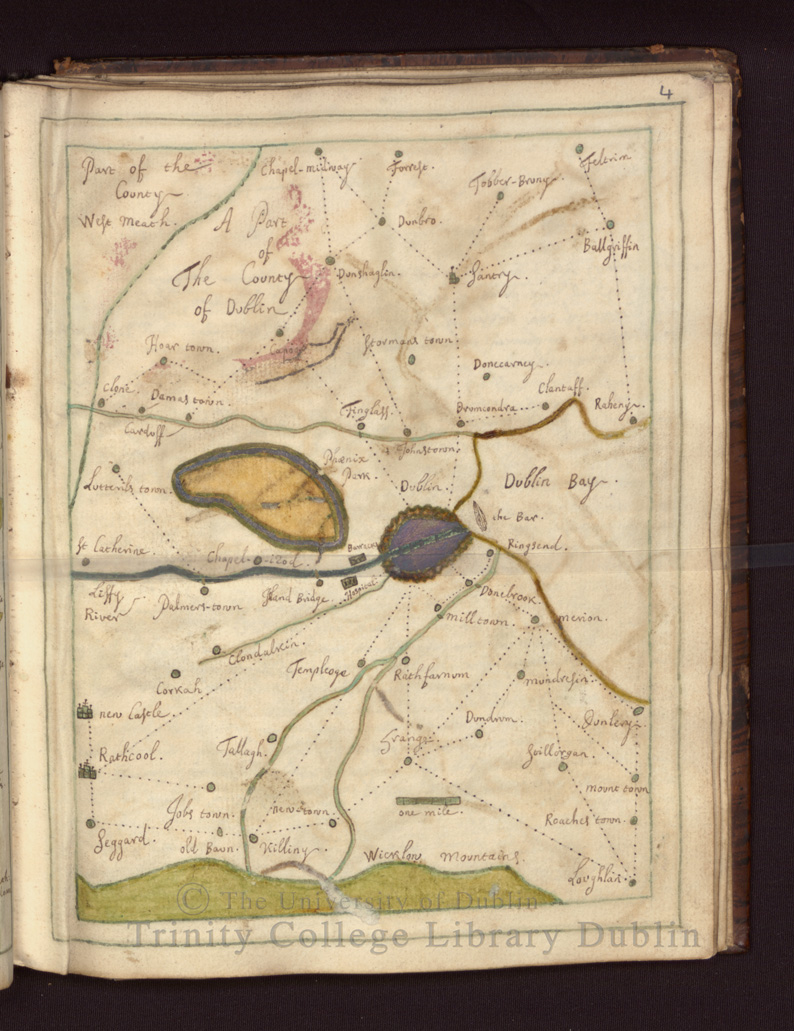 4
Part of the
County
West Meath.
A Part
of
The County
of Dublin
Chapel-midway
Forrest.
Tobber-Bruny
Feltrim
Dunbro.
Ballgriffin
Dunshaglin.
Santry.
Hoar town.
Stormans town
Donecarney
Clone.
Damas town.
Carduff
Finglass
Clantaff.
Bromcondra
Raheny
Johnstown
Phœnix
Park.
Luttrells town.
Dublin
Dublin Bay.
the Bar.
St Catherine
Chapel-izod
Barracks
Ringsend.
Liffy
River
Palmers-town
Hospital
Donebrook
Milltown
Merion.
Clondalkin.
Corkah
Templeoge
Rathfarnum
New Castle.
Rathcool.
Tallagh.
Grange
Dundrum.
Dunlery
mount town
Jobs town.
new town
one mile.
Roaches town.
Seggard
old Bawn
Killiny
Wicklow Mountains.
Loughlin
© The University of Dublin
Trinity College Library Dublin